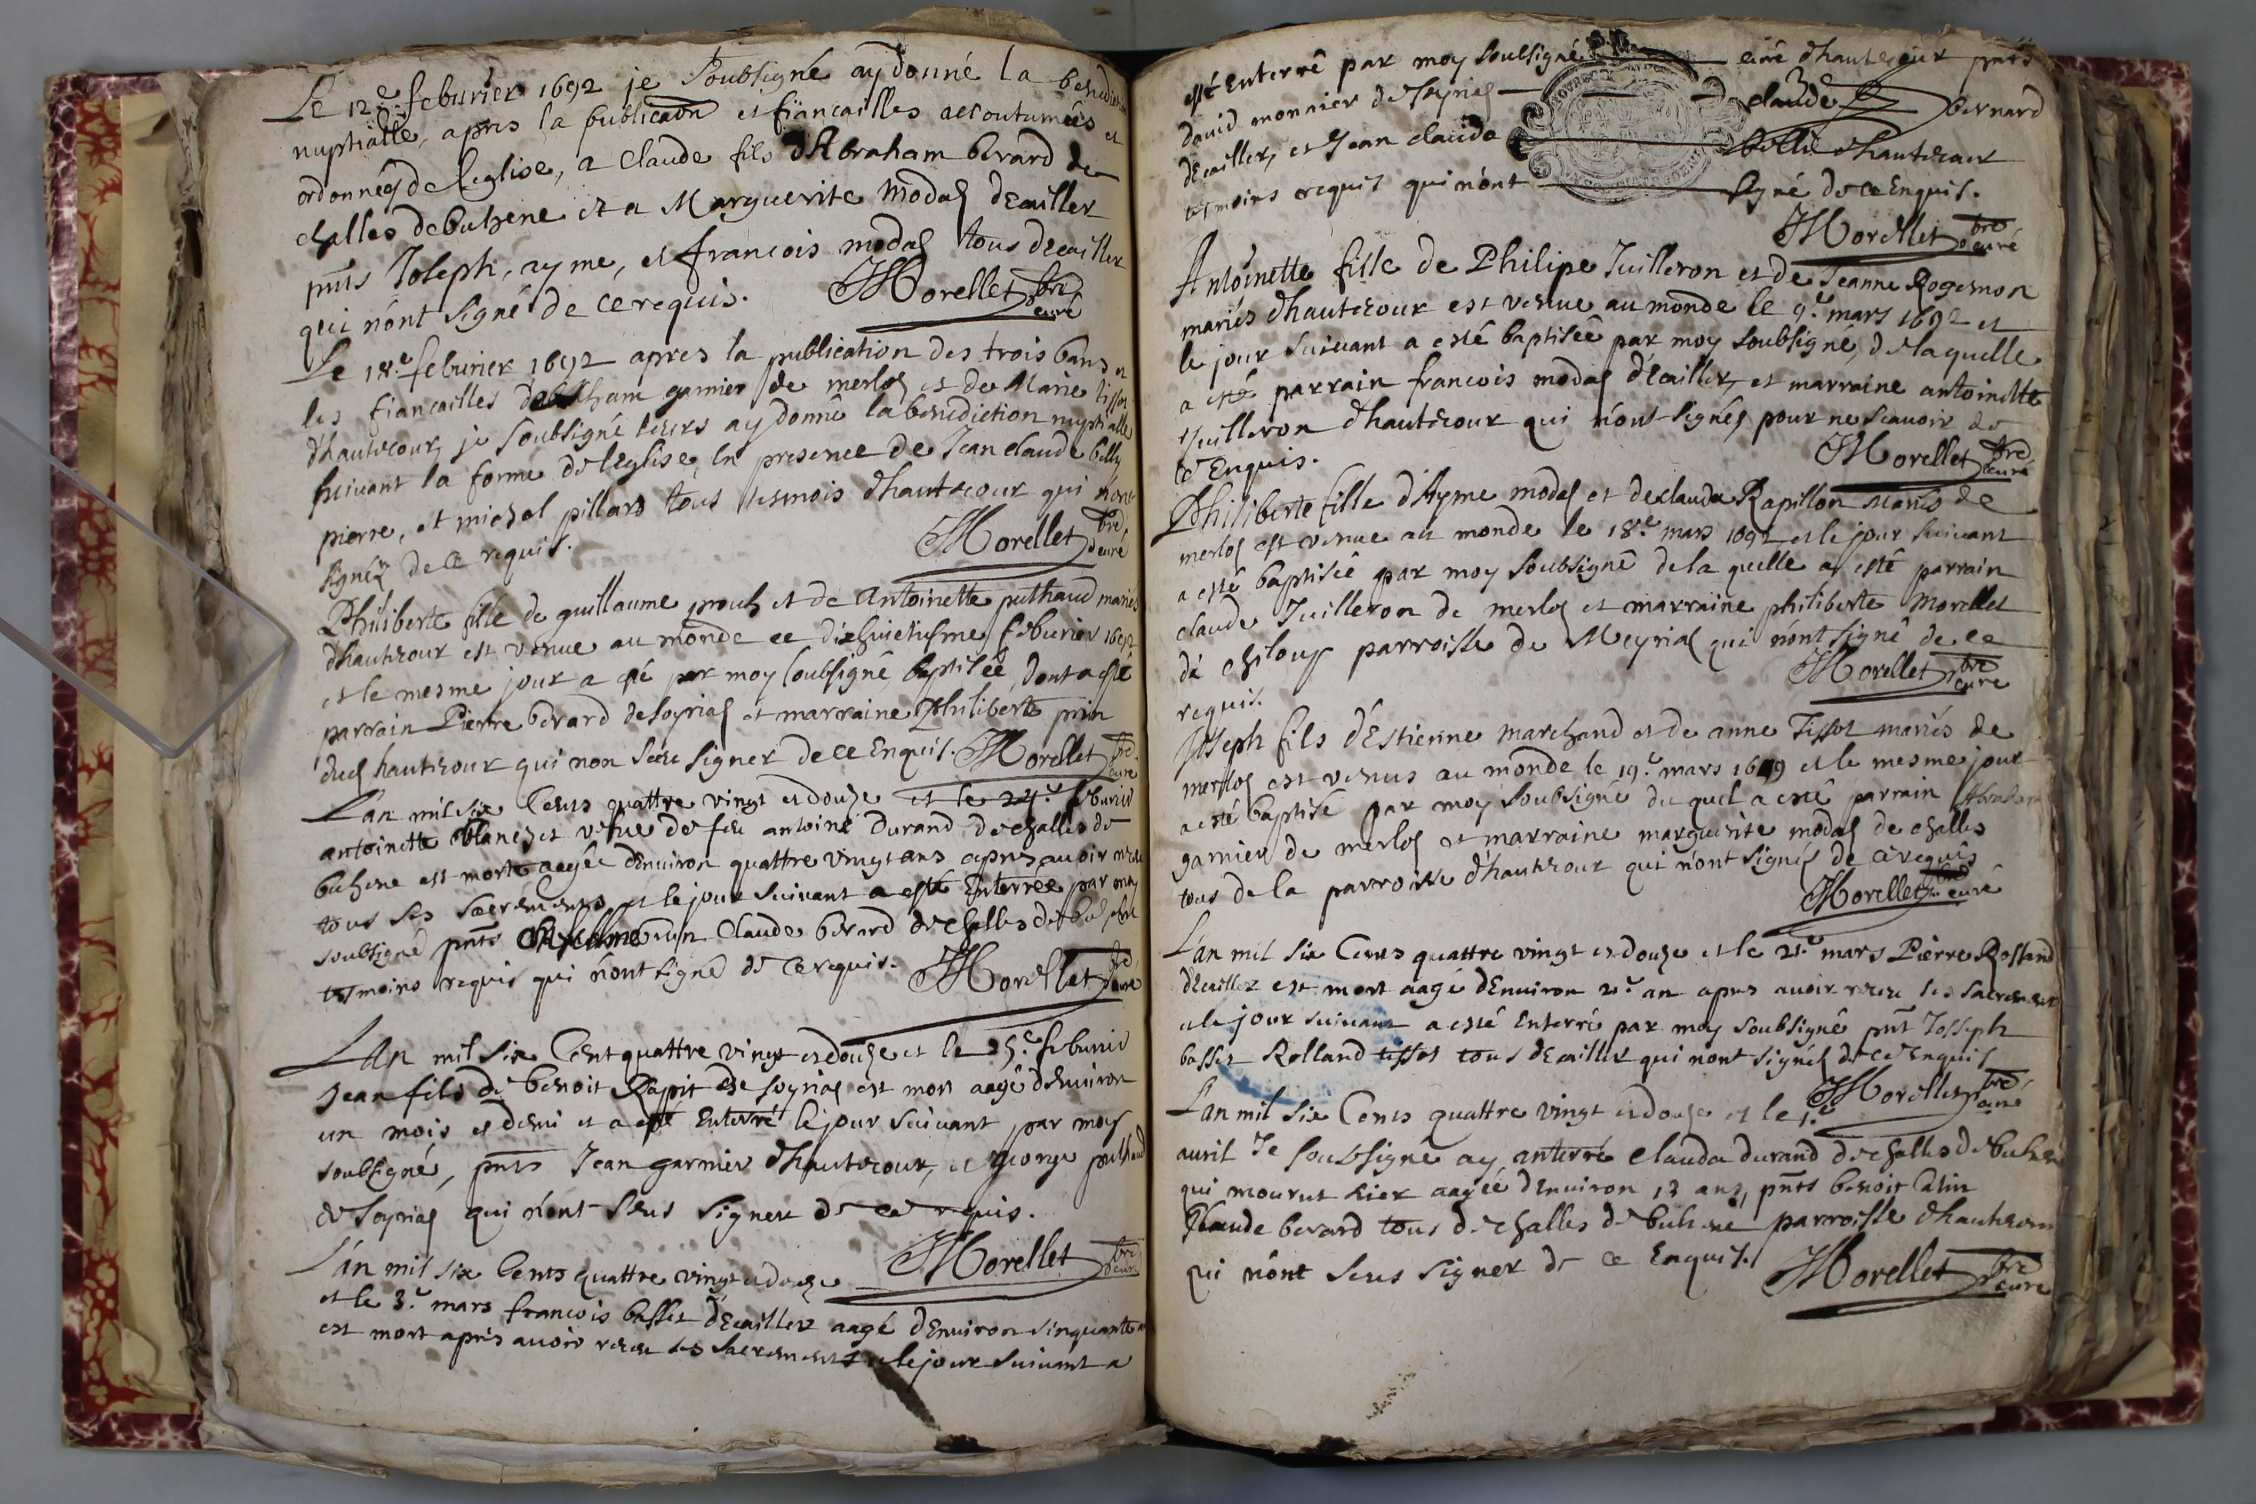 Le 12e feburier 1692 je Soubsigné ay donné la benediction
nuptialle, apres la publicaon et fiancailles accoutumées et
ordonnées de l'eglise, a Claude fils d'Abraham berard de
challes de buhene et a Marguerite modas d'ecailler
pnts Joseph, ayme, et francois modas tous d'ecailler
qui n'ont signé de ce requis. Morellet pbre curé
Le 18e feburier 1692 apres la publication des trois bans et
les fiancailles d'abraham garnier de merlos et de Marie tissot
d'hautecour, je soubsigné leurs ay donné la benediction nuptialle
suivant la forme de l'eglise, en presence de Jean claude billy
pierre, et michel pillard tous tesmois d'hautecour qui n'ont
signés de ce requis. Morellet pbre curé
Philiberte fille de guillaume et de antoinette puthaud mariés
d'hautecour est venue au monde ce dixhuictiesme feburier 1692
et le mesme jour a esté par moy soubsigné baptisée, dont a esté
parrain Pierre berard de soyrias et marraine Philiberte prin
hautecour qui non sceu signer de ce Enquis. Morellet pbre curé
L'an mil six Cents quattre vingt et douze et le 24e feburier
antoinette blanchet vefue de feu antoine durand de challes de
buhene est morte aagée d'Enuiron quattre vingt ans apres auoir receu
tous ses sacrements et le jour suiuant a esté Enterrée par moy
soubsigné pnts Claude berard de challes de buhene
tesmoins requis qui n'ont signé de ce requis. Morellet pbre curé
L'an mil six Cent quattre vingt et douze et le 25e feburier
Jean fils de benoit Rapit de soyrias est mort aagé d'Enuiron
un mois et demi et a esté Enterré le jour suiuant, par moy
soubsigné, pnts Jean garnier d'hautecour, et george puthaud
de soyrias qui n'ont sceus signer de ce requis.
L'an mil six Cents quattre vingt et douze Morellet pbre curé
et le 3e mars francois basset d'Ecailler aagé d'Enuiron sinquante
est mort apres auoir receu les sacrements et le jour suiuant a
esté Enterré par moy soubsigné curé d'hautecour pnts
dauid monnier de soyrias claude bernard
d'Ecailler, et Jean claude billi d'hautecour
tesmoins requis qui n'ont signé de ce Enquis.
Morellet pbre curé
Antoinette fille de Philipe Juilleron et de Jeanne Rogemon
mariés d'hautecour est venue au monde le 9e mars 1692 et
le jour suiuant a esté baptisée par moy soubsigné, de laquelle
a esté parrain francois modas d'ecailler, et marraine antoinette
Juilleron d'hautecour qui n'ont signés pour ne scauoir de
ce Enquis. Morellet pbre curé
Philiberte fille d'Ayme modas et de clauda Rapillon mariés de
merlos est venue au monde le 18e mars 1692 et le jour suiuant
a esté baptisée par moy soubsigné de la quelle a esté parrain
claude Juilleron de merlos et marraine philiberte Morellet
de chiloup parroisse de Meyrias qui n'ont signé de ce
requis. Morellet pbre curé
Joseph fils d'Estienne marchand et de anne Tissot mariés de
merlos est venus au monde le 19e mars et le mesme jour
a esté baptisé par moy soubsigné du quel a esté parrain Abraham
garnier de merlos et marraine marguerite modas de challes
tous de la parroisse d'hautecour qui n'ont signés de ce requis
Morellet pbre curé
L'an mil six Cents quattre vingt et douze et le 21e mars Pierre Rolland
d'Ecailler est mort aagé d'Enuiron 2e an apres auoir receu les sacrements
et le jour suiuant a esté Enterré par moy soubsigné pnt Josseph
basset Rolland tissot tous d'Ecailler qui n'ont signés de ce Enquis
Morellet pbre curé
L'an mil six Cents quattre vingt et douze et le 1e
auril Je soubsigné ay anterré Clauda durand de challes de buhene
qui mourut hier aagée d'Enuiron 13 ans, pnts benoit Catin
Claude berard tous de challes de buhene parroisse d'hautecour
qui n'ont sceus signer de ce Enquis. Morellet pbre curé